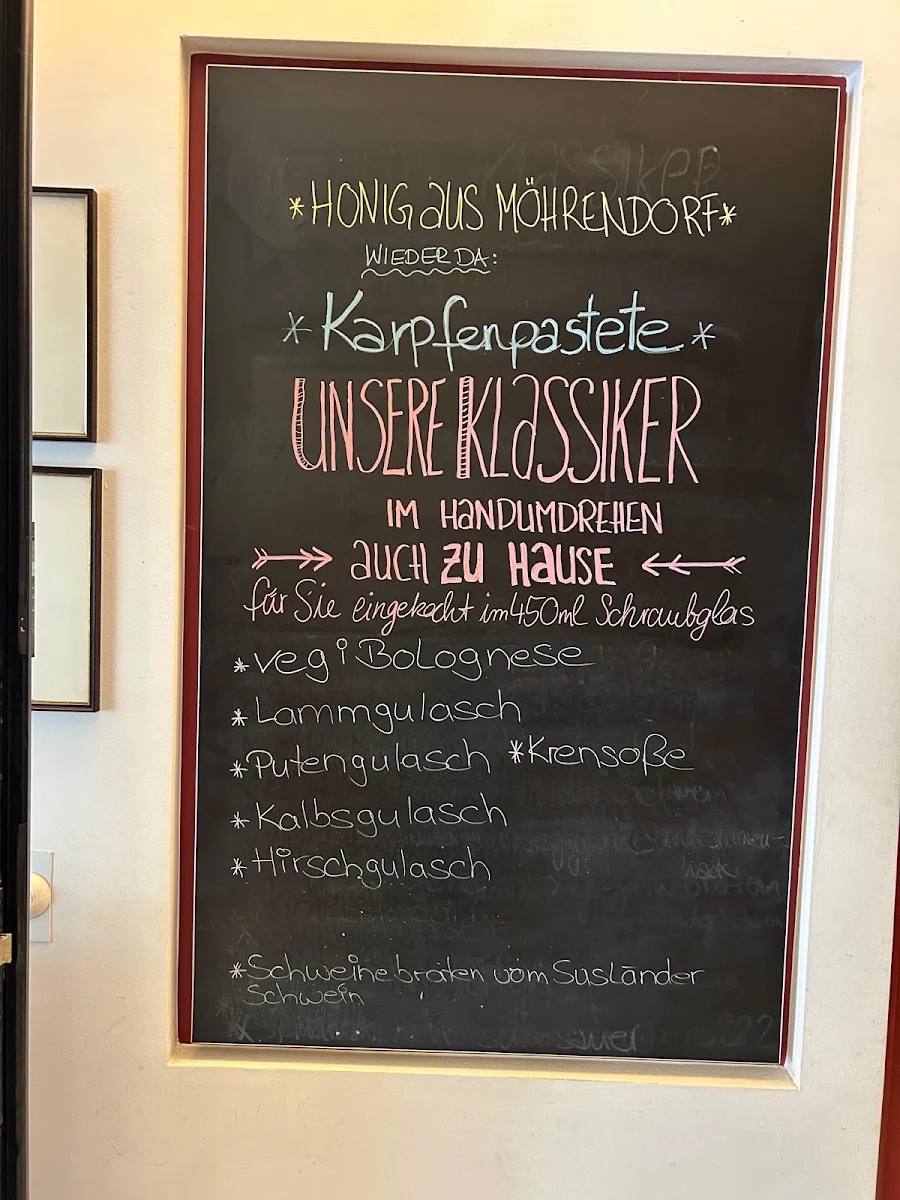 *HONIG aus MÖHRENDORF*
WIEDER DA:
*Karpfenpastete*
UNSERE KLASSIKER
IM HANDUMDREHEN
auch ZU HAUSE
für Sie eingekocht im 450ml Schraubglas
*vegi Bolognese
*Lammgulasch
*Putengulasch *Krensoße
*Kalbsgulasch
*Hirschgulasch
*Schweinebraten vom Susländer
Schwein